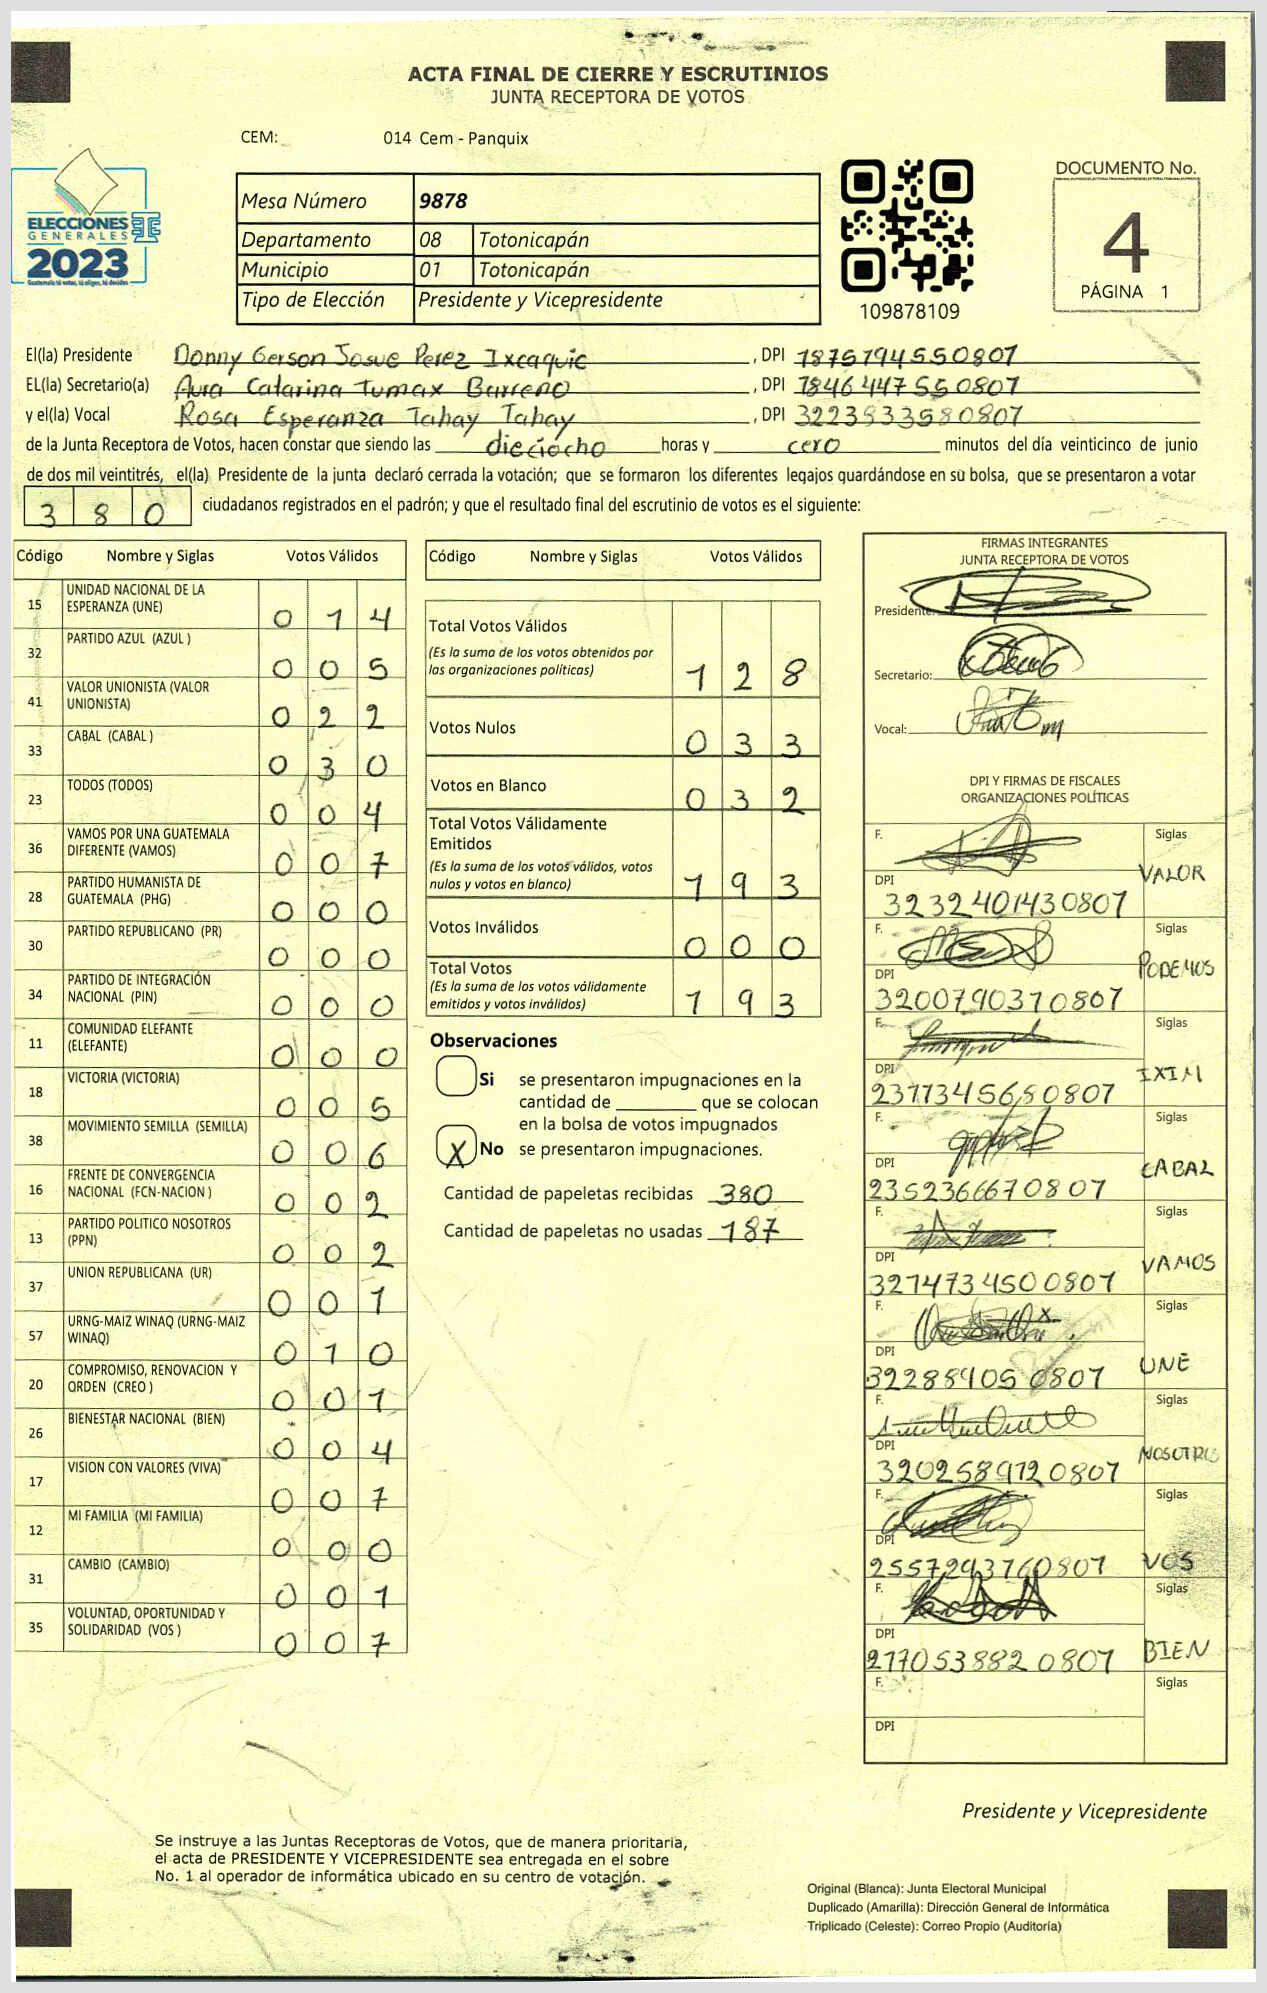 ACTA FINAL DE CIERRE Y ESCRUTINIOS
JUNTA RECEPTORA DE VOTOS
CEM: 014 Cem - Panquix
ELECCIONES
GENERALES
2023
Guatemala tú votas, tú eliges, tú decides
Mesa Número 9878
Departamento 08 Totonicapán
Municipio 01 Totonicapán
Tipo de Elección Presidente y Vicepresidente
109878109
DOCUMENTO No.
4
PÁGINA 1
El(la) Presidente Donny Gerson Josue Perez Ixcaquic, DPI 1875794550807
EL(la) Secretario(a) Aura Catarina Tumax Barreno, DPI 1846447550807
y el(la) Vocal Rosa Esperanza Tahay Tahay, DPI 3223933580807
de la Junta Receptora de Votos, hacen constar que siendo las dieciocho horas y cero minutos del día veinticinco de junio
de dos mil veintitrés, el(la) Presidente de la junta declaró cerrada la votación; que se formaron los diferentes legajos guardándose en su bolsa, que se presentaron a votar
380 ciudadanos registrados en el padrón; y que el resultado final del escrutinio de votos es el siguiente:
Código Nombre y Siglas Votos Válidos
15 UNIDAD NACIONAL DE LA ESPERANZA (UNE) 014
32 PARTIDO AZUL (AZUL ) 005
41 VALOR UNIONISTA (VALOR UNIONISTA) 022
33 CABAL (CABAL ) 030
23 TODOS (TODOS) 004
36 VAMOS POR UNA GUATEMALA DIFERENTE (VAMOS) 007
28 PARTIDO HUMANISTA DE GUATEMALA (PHG) 000
30 PARTIDO REPUBLICANO (PR) 000
34 PARTIDO DE INTEGRACIÓN NACIONAL (PIN) 000
11 COMUNIDAD ELEFANTE (ELEFANTE) 000
18 VICTORIA (VICTORIA) 005
38 MOVIMIENTO SEMILLA (SEMILLA) 006
16 FRENTE DE CONVERGENCIA NACIONAL (FCN-NACION ) 002
13 PARTIDO POLITICO NOSOTROS (PPN) 002
37 UNION REPUBLICANA (UR) 001
57 URNG-MAIZ WINAQ (URNG-MAIZ WINAQ) 010
20 COMPROMISO, RENOVACION Y ORDEN (CREO ) 001
26 BIENESTAR NACIONAL (BIEN) 004
17 VISION CON VALORES (VIVA) 007
12 MI FAMILIA (MI FAMILIA) 000
31 CAMBIO (CAMBIO) 001
35 VOLUNTAD, OPORTUNIDAD Y SOLIDARIDAD (VOS ) 007
Código Nombre y Siglas Votos Válidos
Total Votos Válidos 128
(Es la suma de los votos obtenidos por
las organizaciones políticas)
Votos Nulos 033
Votos en Blanco 032
Total Votos Válidamente
Emitidos 193
(Es la suma de los votos válidos, votos
nulos y votos en blanco)
Votos Inválidos 000
Total Votos 193
(Es la suma de los votos válidamente
emitidos y votos inválidos)
Observaciones
Si se presentaron impugnaciones en la
cantidad de ________ que se colocan
en la bolsa de votos impugnados
X No se presentaron impugnaciones.
Cantidad de papeletas recibidas 380
Cantidad de papeletas no usadas 187
FIRMAS INTEGRANTES
JUNTA RECEPTORA DE VOTOS
Presidente:
Secretario:
Vocal:
DPI Y FIRMAS DE FISCALES
ORGANIZACIONES POLÍTICAS
F. Siglas
DPI 3232401430807 VALOR
F. Siglas
DPI 3200790370807 PODEMOS
F. Siglas
DPI 2377345680807 IXIM
F. Siglas
DPI 2352366670807 CABAL
F. Siglas
DPI 3274734500807 VAMOS
F. Siglas
DPI 322889050807 UNE
F. Siglas
DPI 3202589720807 NOSOTROS
F. Siglas
DPI 2557293760807 VOS
F. Siglas
DPI 2770538820807 BIEN
F. Siglas
DPI
Presidente y Vicepresidente
Se instruye a las Juntas Receptoras de Votos, que de manera prioritaria,
el acta de PRESIDENTE Y VICEPRESIDENTE sea entregada en el sobre
No. 1 al operador de informática ubicado en su centro de votación.
Original (Blanca): Junta Electoral Municipal
Duplicado (Amarilla): Dirección General de Informática
Triplicado (Celeste): Correo Propio (Auditoría)